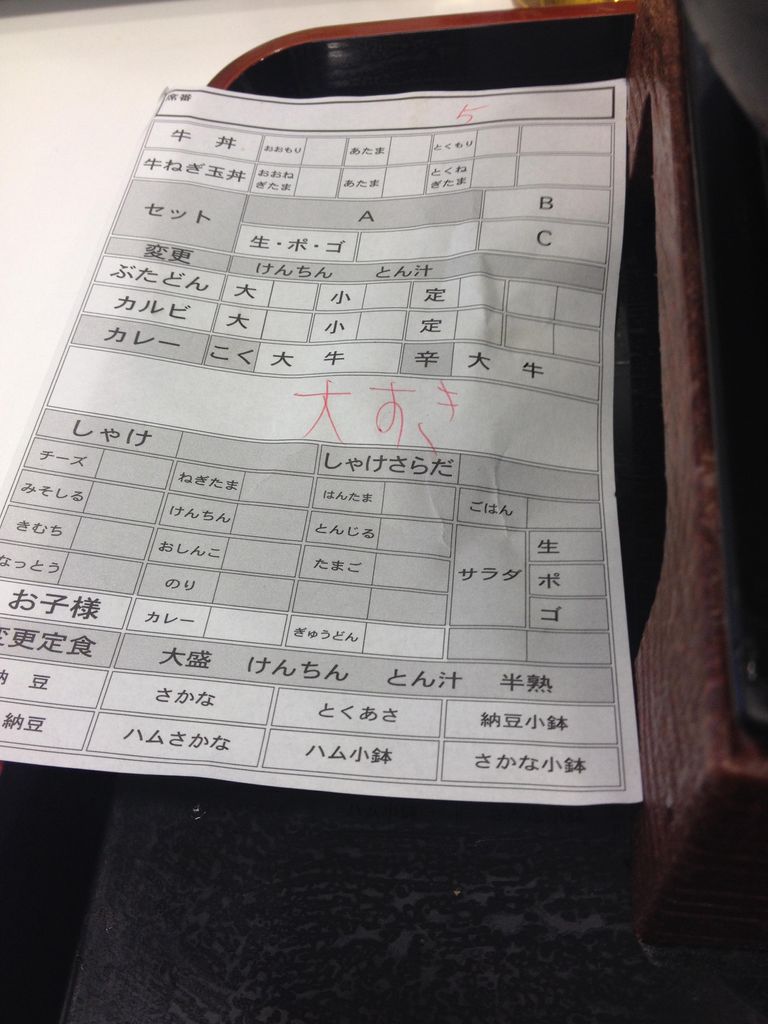 席番 5
牛 丼 おおもり あたま とくもり
牛ねぎ玉丼 おおねぎたま あたま とくねぎたま
セット A B
生・ポ・ゴ C
変更 けんちん とん汁
ぶたどん 大 小 定
カルビ 大 小 定
カレー こく 大 牛 辛 大 牛
大 すき
しゃけ しゃけさらだ
チーズ ねぎたま はんたま ごはん
みそしる けんちん とんじる サラダ 生
きむち おしんこ たまご ポ
なっとう のり ゴ
お子様 カレー ぎゅうどん
変更定食 大盛 けんちん とん汁 半熟
納 豆 さかな とくあさ 納豆小鉢
納豆 ハムさかな ハム小鉢 さかな小鉢